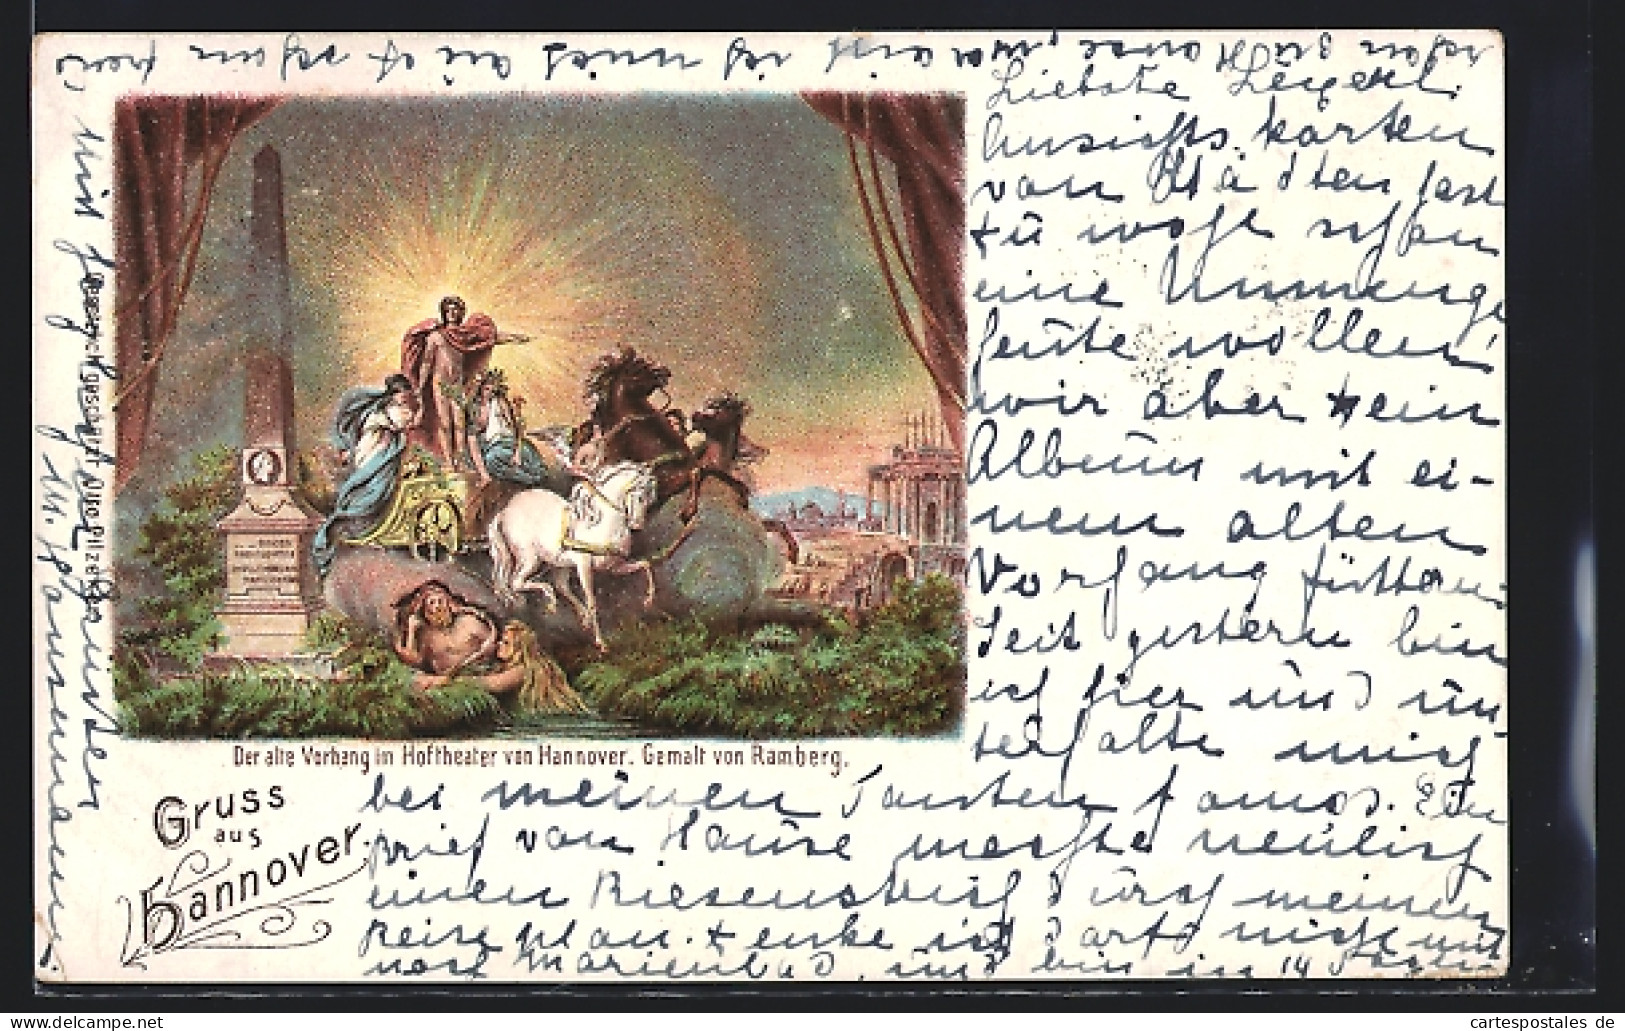 Liebste
Ansichtskarten
von Städten hast
Du wohl schon
eine Unmenge
heute wollen
wir aber Dein
Album mit ei-
nem alten
Vorhang füttern.
Seit gestern bin
ich hier und un
terhalte mich
bei meinen Tanten famos. Ein
Brief von Hause machte neulich
einen Riesenstrich durch meinen
Reiseplan. Denke ich darf nicht mit
nach Marienbad, und bin in 14 Tagen
schon zu Hause, woran ich mich aber schon
mit
Der alte Vorhang im Hoftheater von Hannover. Gemalt von Ramberg.
Gruss
aus
Hannover.
cartespostales de